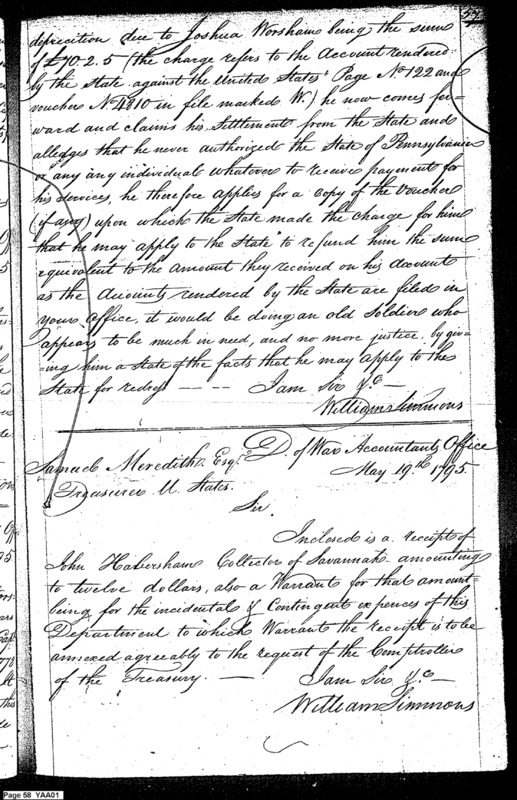 deprecition due to Joshua Worsham being the sum
of £70.2.5 (the charge refers to the Account rendered
by the State against the United States' Page No 122 and
voucher No 4210 in file marked W.) he now comes for=
ward and claims his Settlement from the State and
alledges that he never authorized the State of Pennsylvania
or any any individual whatever to receive payment for
his services, he therefore applies for a copy of the Voucher
(if any) upon which the State made the charge for him
that he may apply to the State to refund him the sum
equivalent to the amount they received on his account
as the Accounts rendered by the State are filed in
your office, it would be doing an old Soldier who
appears to be much in need, and no more justice, by giv-
-ing him a State of the facts that he may apply to the
State for redress — — — I am Sir &c —
William Simmons
D. of War Accountants Office
May 19th 1795.
Samuel Meredith Esqr.
Treasurer U. States.
Sir
Inclosed is a receipt of
John Habersham Collector of Savannah amounting
to twelve dollars, also a Warrant for that amount=
being for the incidental & Contingent expences of this
Department to which Warrant the receipt is to be
annexed agreeably to the request of the Comptroller
of the Treasury. — I am Sir &c —
William Simmons
Page 58 YAA01